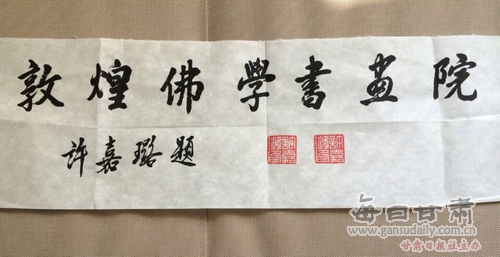 敦煌佛學書畫院
許嘉璐題
每日甘肃
www.gansudaily.com.cn
甘肃日报社主办